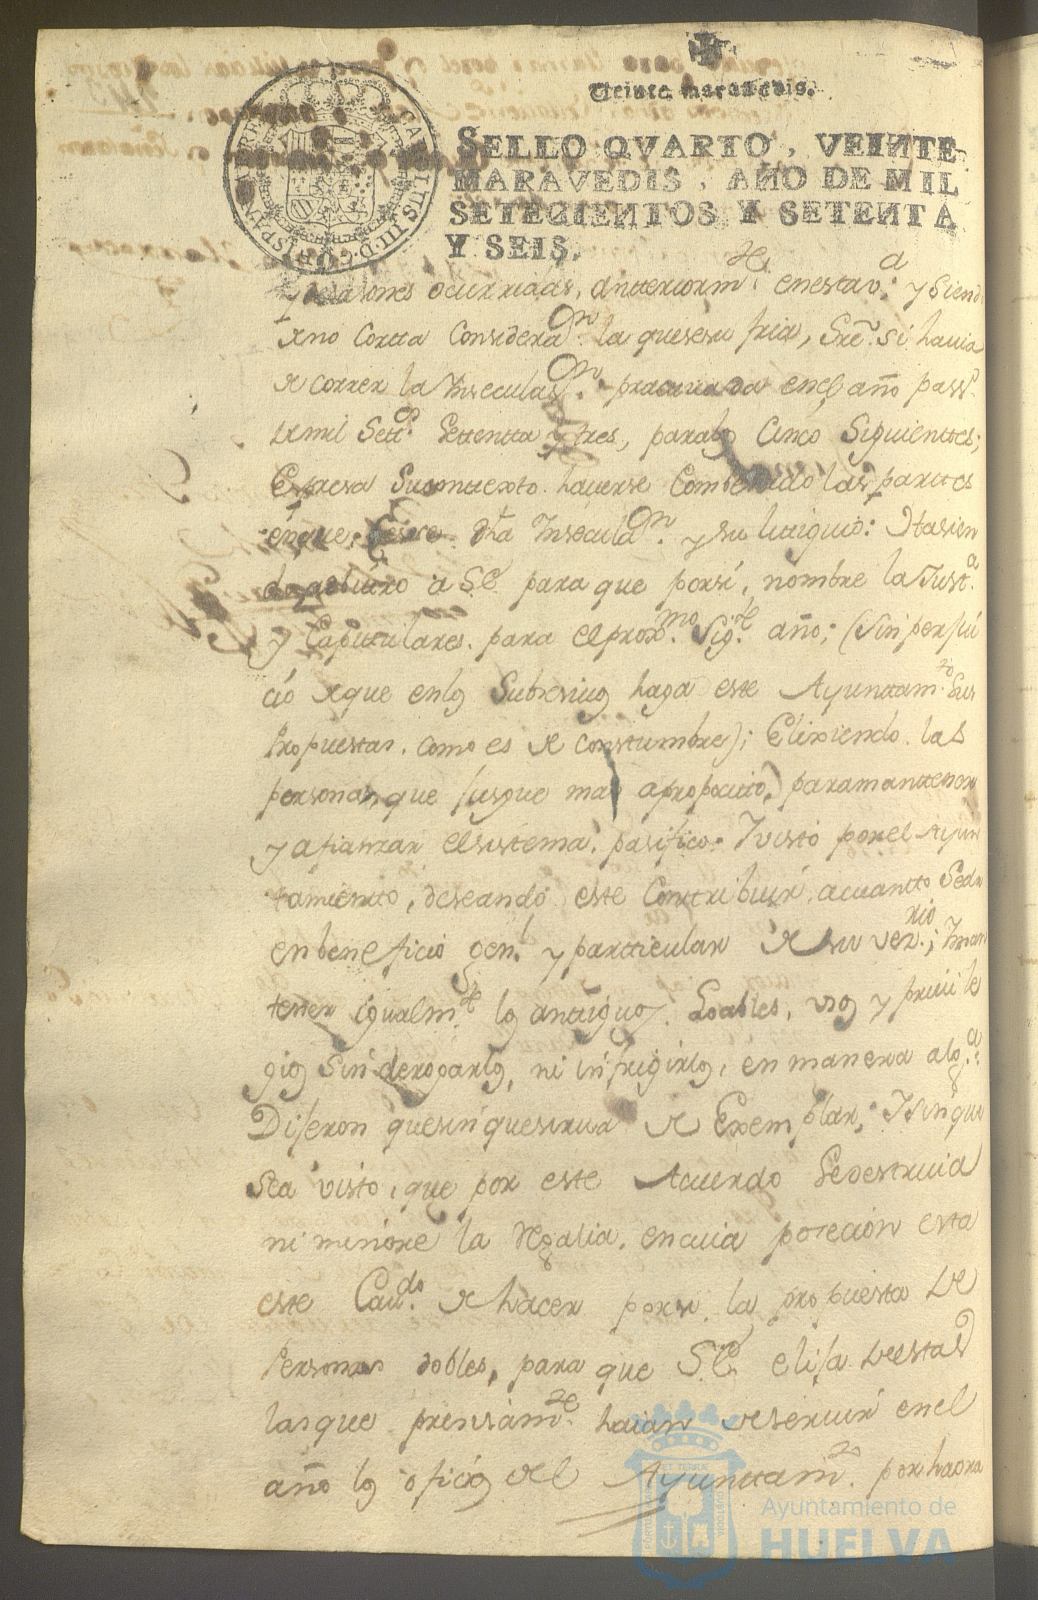 Veinte maravedis.
SELLO QVARTO, VEINTE
MARAVEDIS, AÑO DE MIL
SETECIENTOS Y SETENTA
Y SEIS.
CAROLUS III D G HISPAN REX
ocurridas, anteriorm.te enesta v.a y siend
xno Corta Considera.on la quesesu fria, sre. si havia
de correr la Inseculas.on practicada enel año pass.
demil Set.os Settentta y tres, paralos Cinco Siguienttes;
Expresa Supmtexto haverse Combenido las parttes
enque dha Insecula.on y su litiguio: Itasien
do arbitro a S.E. para que porsi, nombre la Just.a
y Capitulares para elprox.mo Sig.te año; (sin perjui
cio de que enlos Subcesivos haga este Ayunttam.to sus
Propuestas, como es de constumbre); Elixiendo las
personas, que jusgue mas aproposito, paramanttener
y afianzar elsistema pasifico. Ivisto porel Ayun
tamiento, deseando este Contribuir acuantto Seda
enbeneficio gen.l y particular de su vez.rio; Iman
tener igualm.te los antiguos Loables, usos y privile
gios sin derogarlos, ni infrigirlos, en manera alg.a
Dijeron quesin quesirva de Exemplar, Isin que
sea visto, que por este Acuerdo Sedestruia
ni minore la Regalia, encuia poseción esta
este Cav.do de hacer porsi la propuesta de
Personas dobles, para que S.E. elija deestas
lasque presisam.te haian deservir enel
año los oficios del Ayunttam.to por haora
Ayuntamiento de
HUELVA